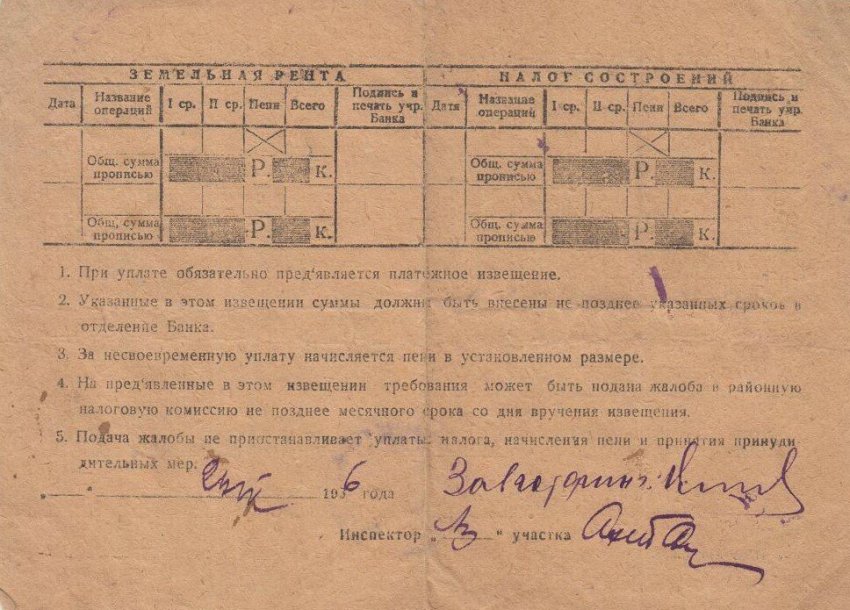 ЗЕМЕЛЬНАЯ РЕНТА
НАЛОГ СОСТРОЕНИЙ
Дата Название операций I ср. II ср. Пени Всего Подпись и печать учр. Банка
Датя Название операций I ср. II ср. Пени Всего Подпись и печать учр. Банка
Общ. сумма прописью Р. К.
Общ. сумма прописью Р. К.
Общ. сумма прописью Р. К.
Общ. сумма прописью Р. К.
1. При уплате обязательно пред'является платежное извещение.
2. Указанные в этом извещении суммы должны быть внесены не позднее указанных сроков в
отделение Банка.
3. За несвоевременную уплату начисляется пени в установленном размере.
4. На пред'явленные в этом извещении требования может быть подана жалоба в районную
налоговую комиссию не позднее месячного срока со дня вручения извещения.
5. Подача жалобы не приостанавливает уплаты налога, начисления пени и принятия принуди
дительных мер.
1936 года
Инспектор „ “ участка